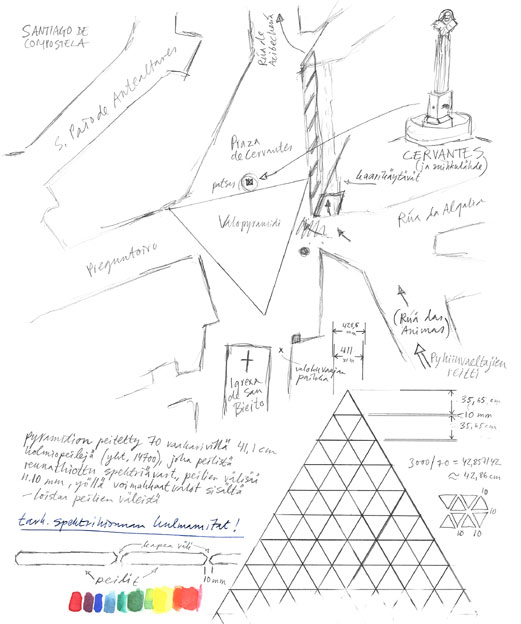 SANTIAGO DE
COMPOSTELA
Rúa de
Acibechería
S. Paio de Antealtares
Praza
de Cervantes
CERVANTES
(ja suihkulähde)
patsas
kaarikäytävät
Valopyramidi
Rúa da Algalia
Preguntoiro
(Rúa das
Animas)
Pyhiinvaeltajien
reitti
Igrexa
de San
Bieito
valokuvaajan
paikka
428,6
mm
411
mm
35,65 cm
10 mm
35,65 cm
pyramidin peitetty 70 vaakarivillä 41,1 cm
kolmiopeilejä (yht. 14700), joka peilistä
reunahiotut spektrivärit, peilien välissä
11.10 mm, yöllä voimakkaat valot sisältä
– loistaa peilien väleistä
3000/70 = 42,857142
≈ 42,86 cm
10
10
10 10
tark. spektrihionnan kulmamitat!
kapea väli
peilit
10 mm